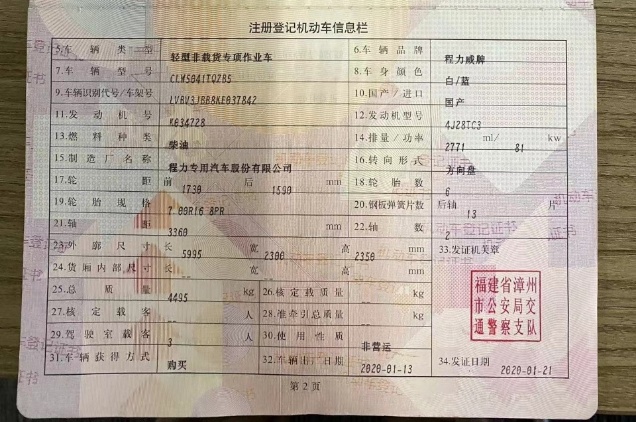 注册登记机动车信息栏
5.车辆类型 轻型非载货专项作业车 6.车辆品牌 程力威牌
7.车辆型号 CLW5041TQZB5 8.车身颜色 白/蓝
9.车辆识别代号/车架号 LVBV3JBB8KE037842 10.国产/进口 国产
11.发动机号 K034728 12.发动机型号 4J28TC3
13.燃料种类 柴油 14.排量/功率 2771 ml/ 81 kw
15.制造厂名称 程力专用汽车股份有限公司 16.转向形式 方向盘
17.轮距 前 1730 后 1590 mm 18.轮胎数 6
19.轮胎规格 7.00R16 8PR 20.钢板弹簧片数 后轴 13 片
21.轴距 3360 mm 22.轴数 2
23.外廓尺寸 长 5995 宽 2300 高 2350 mm 33.发证机关章
24.货厢内部尺寸 长 -- 宽 -- 高 -- mm
25.总质量 4495 kg 26.核定载质量 -- kg
27.核定载客 -- 人 28.准牵引总质量 -- kg
29.驾驶室载客 3 人 30.使用性质 非营运
31.车辆获得方式 购买 32.车辆出厂日期 2020-01-13 34.发证日期 2020-01-21
福建省漳州
市公安局交
通警察支队
第2页